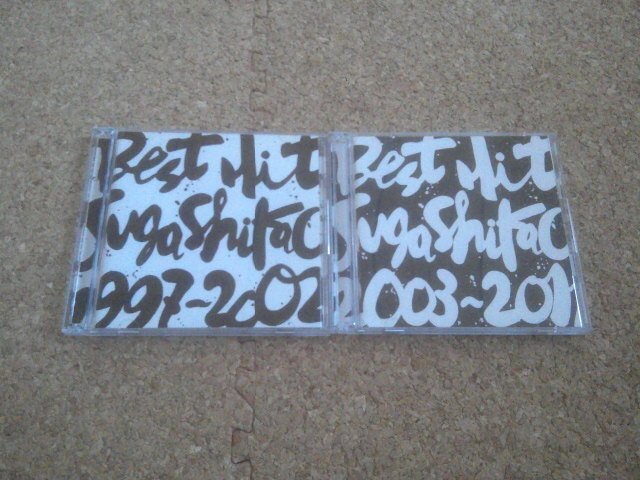 Best Hit
SugaShikao
1997~2002
Best Hit
SugaShikao
2003~2011